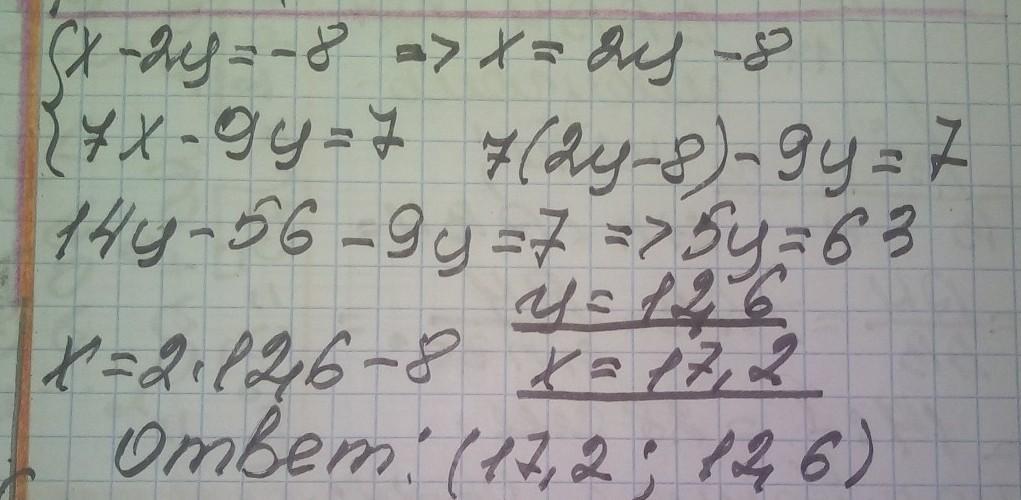 {x - 2y = -8 => x = 2y - 8
7x - 9y = 7 7(2y - 8) - 9y = 7
14y - 56 - 9y = 7 => 5y = 63
y = 12,6
x = 2·12,6 - 8 x = 17,2
Ответ: (17,2 ; 12,6)